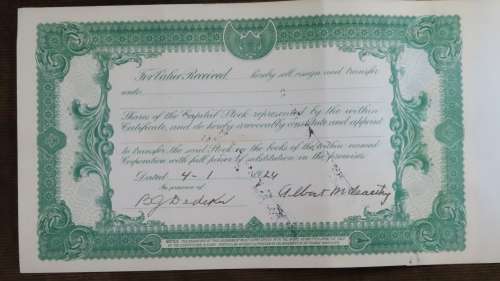 For Value Received, hereby sell, assign and transfer
unto
Shares of the Capital Stock represented by the within
Certificate, and do hereby irrevocably constitute and appoint
to transfer the said Stock on the books of the within named
Corporation with full power of substitution in the premises.
Dated 4-1 1924
In presence of
Albert McCarthy